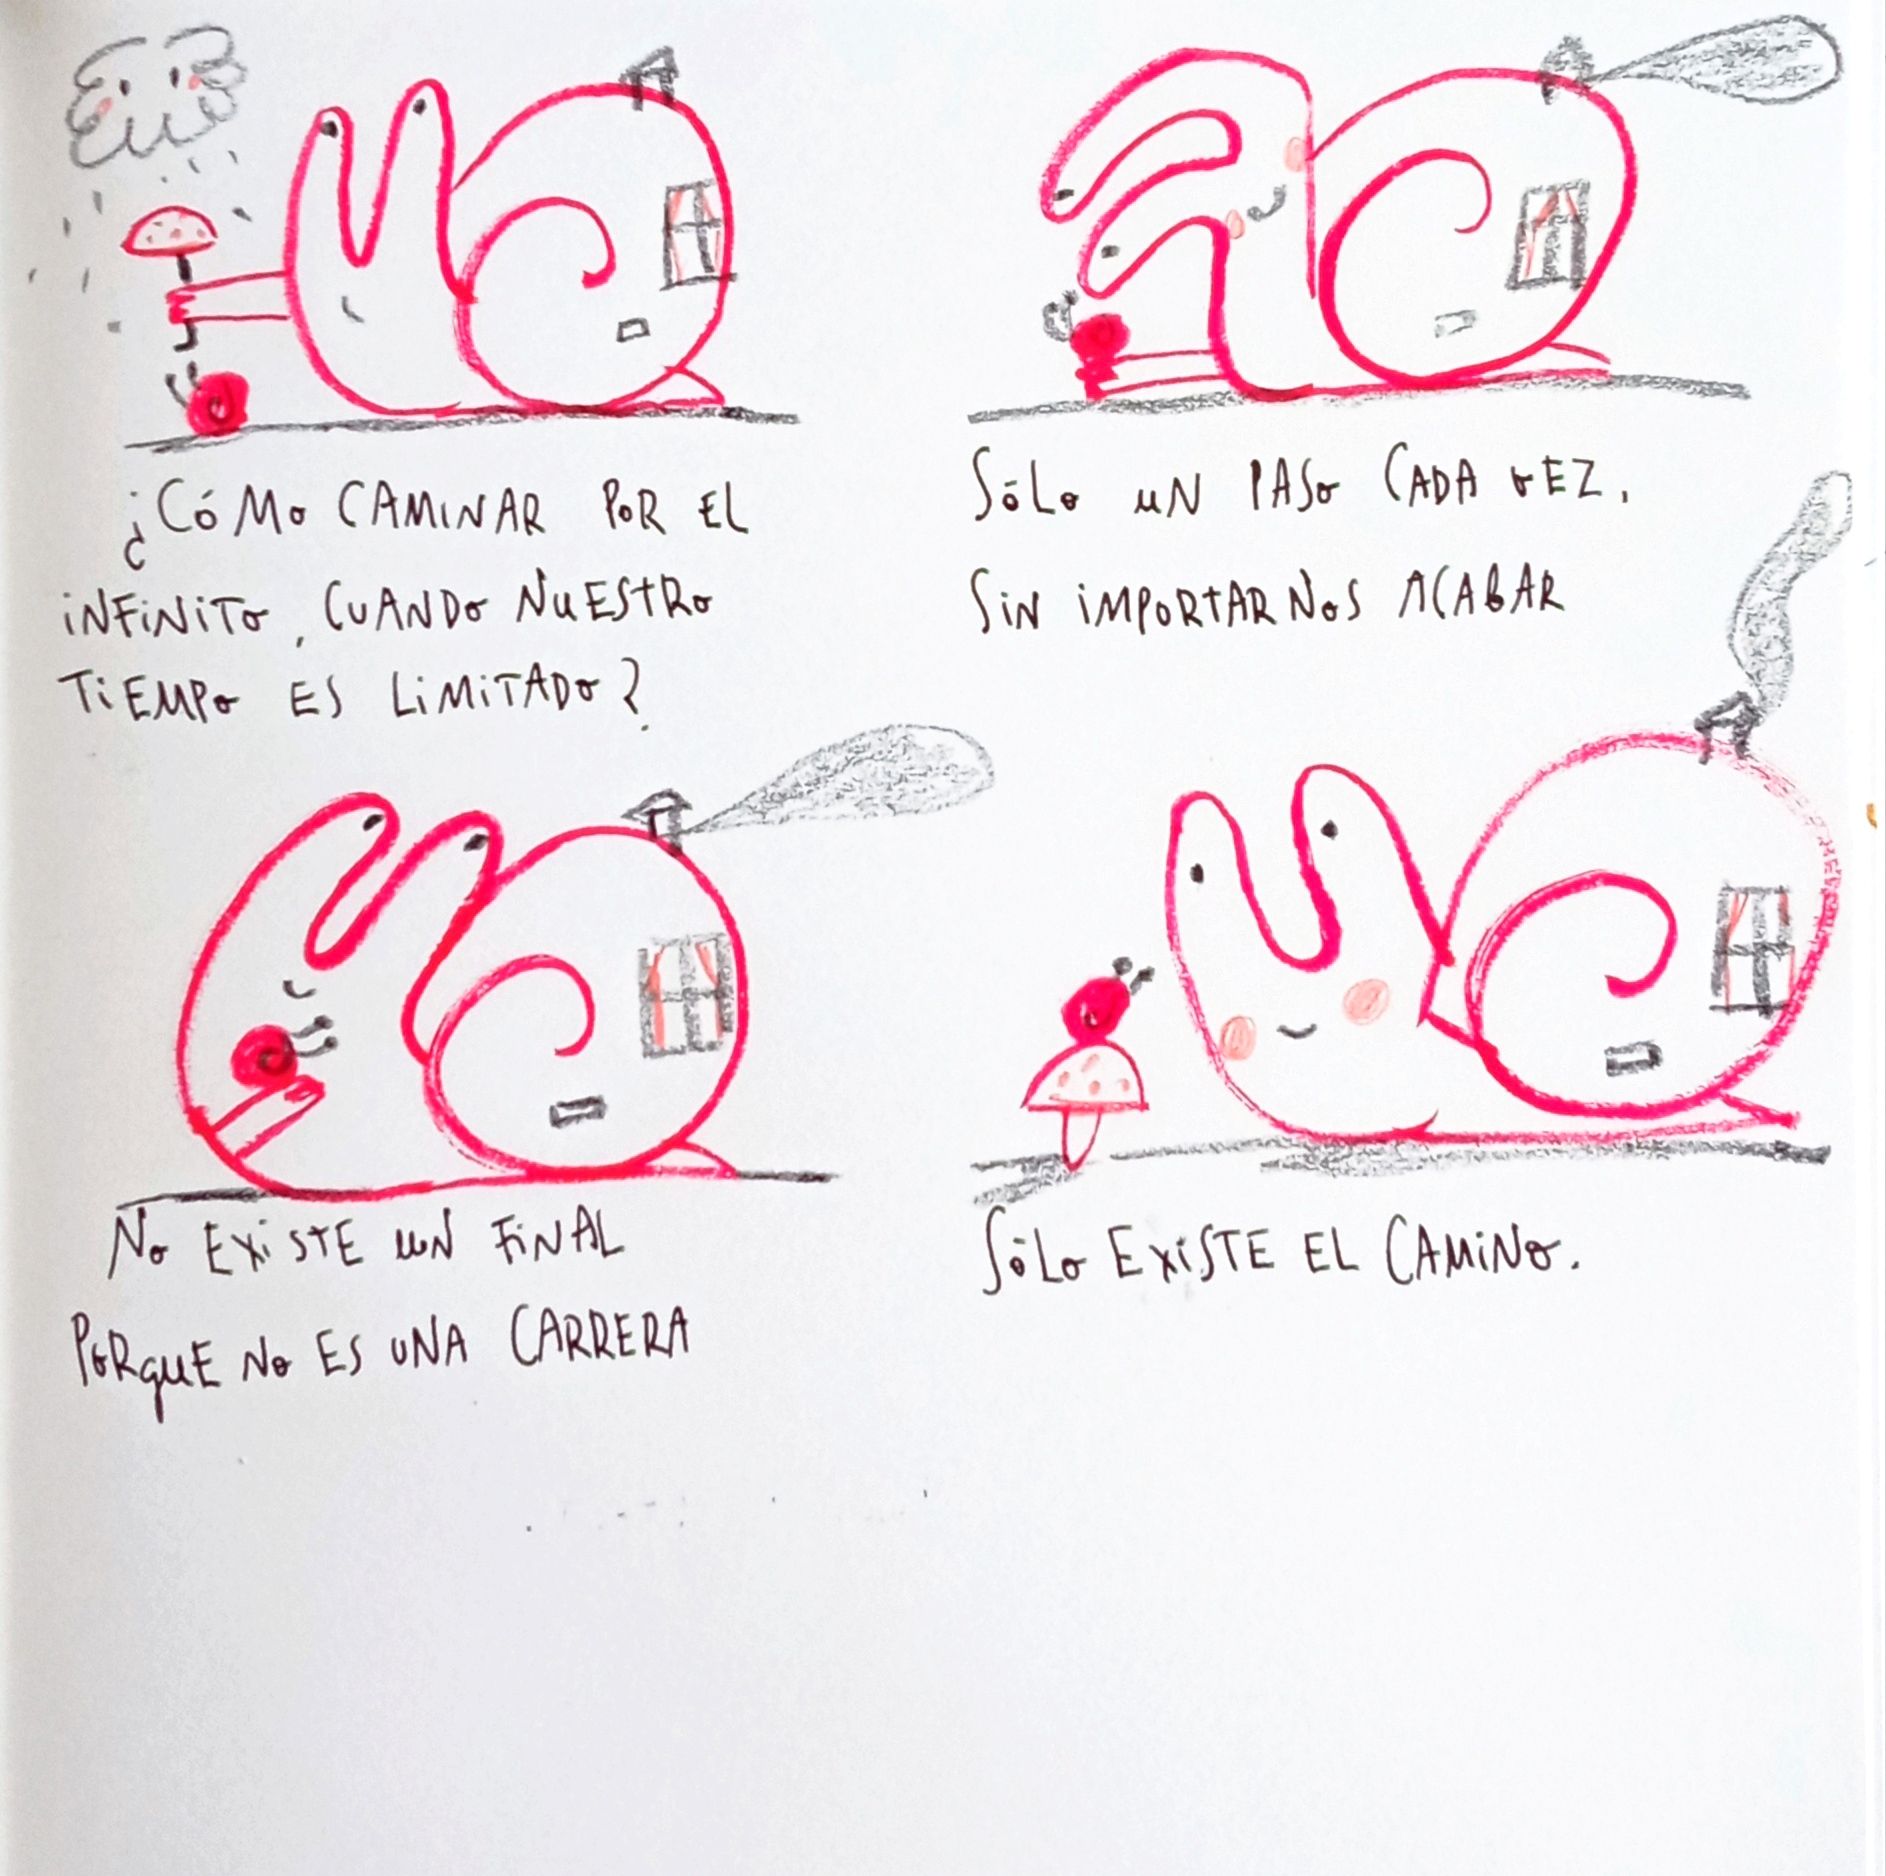 ¿CÓMO CAMINAR POR EL
INFINITO, CUANDO NUESTRO
TIEMPO ES LIMITADO?
SÓLO UN PASO CADA VEZ.
SIN IMPORTARNOS ACABAR
NO EXISTE UN FINAL
PORQUE NO ES UNA CARRERA
SÓLO EXISTE EL CAMINO.